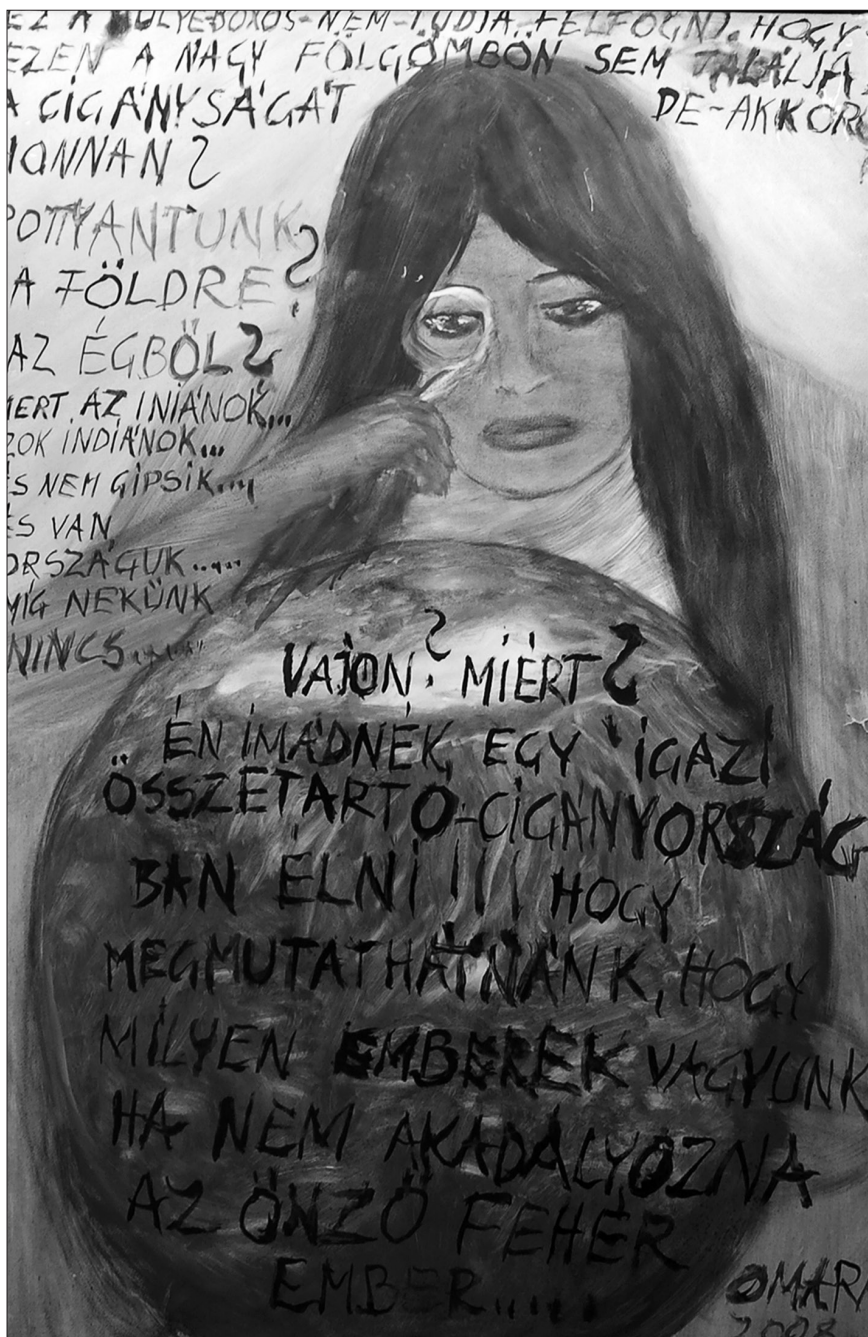 EZ A HÜLYE-BOXOS-NEM-TUDJA. FELFOGNI. HOGY
EZEN A NAGY FÖLGÖMBÖN SEM TALÁLJA
A CIGÁNYSÁGÁT DE-AKKOR
HONNAN?
POTTYANTUNK
A FÖLDRE?
AZ ÉGBÖL?
MERT. AZ INIÁNOK...
AZOK INDIÁNOK...
ÉS NEM GIPSIK....
ÉS VAN
ORSZÁGUK.....
MIG NEKÜNK
NINCS......
VAJON? MIÉRT?
ÉN IMÁDNÉK, EGY IGAZI
ÖSSZETARTO-CIGÁNYORSZÁG
BAN ÉLNI!!! HOGY
MEGMUTATHATNÁNK, HOGY
MILYEN EMBEREK VAGYUNK
HA NEM AKADÁLYOZNA
AZ ÖNZÖ FEHÉR
EMBER.....
OMARA
2008